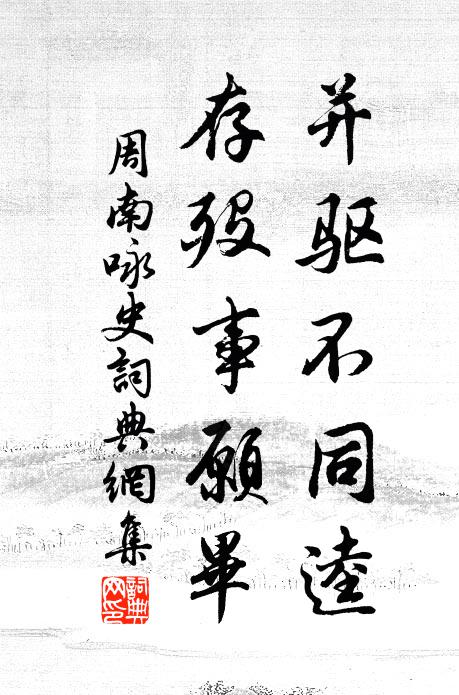 并驱不同逵
存殁事願畢
周南咏史詞典網集
詞典網